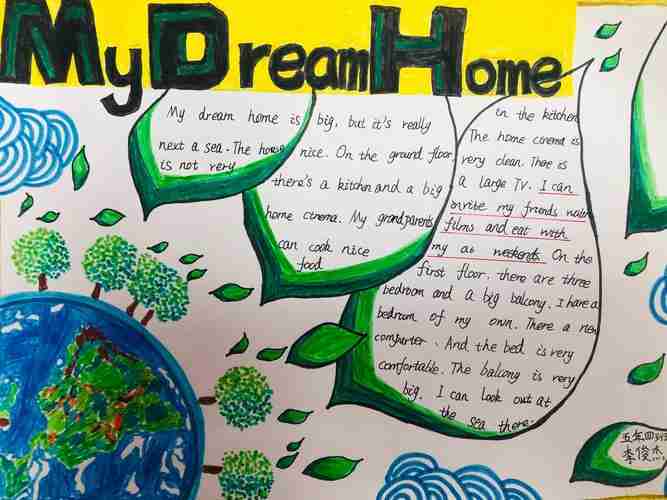 My Dream Home
My dream home is
next a sea. The house
is not very
big, but it's really
nice. On the ground floor,
there's a kitchen and a big
home cinema. My grandparents
can cook nice
food
in the kitchen
The home cinema is
very clean. There is
a large TV. I can
invite my friends
films and eat with
my at weekends. On the
first floor, there are three
bedroom and a big balcony. I have a
bedroom of my own. There a new
computer. And the bed is very
comfortable. The balcony is very
big. I can look out at
the sea there.
五年四班
李俊杰